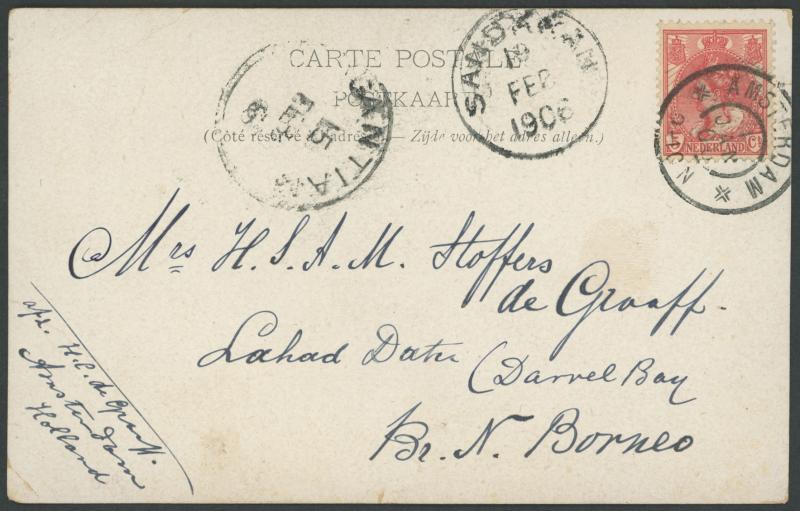 CARTE POSTALE
POSTKAART
(Côté réservé à l'adresse. — Zijde voor het adres alleen.)
SANDAKAN
FEB
1906
15
FEB
AMSTERDAM
NEDERLAND
Mrs H. S. A. M. Stoffers
de Graaff.
Lahad Datu (Darvel Bay
Br. N. Borneo
afz. H.C. de Graaff.
Amsterdam
Holland